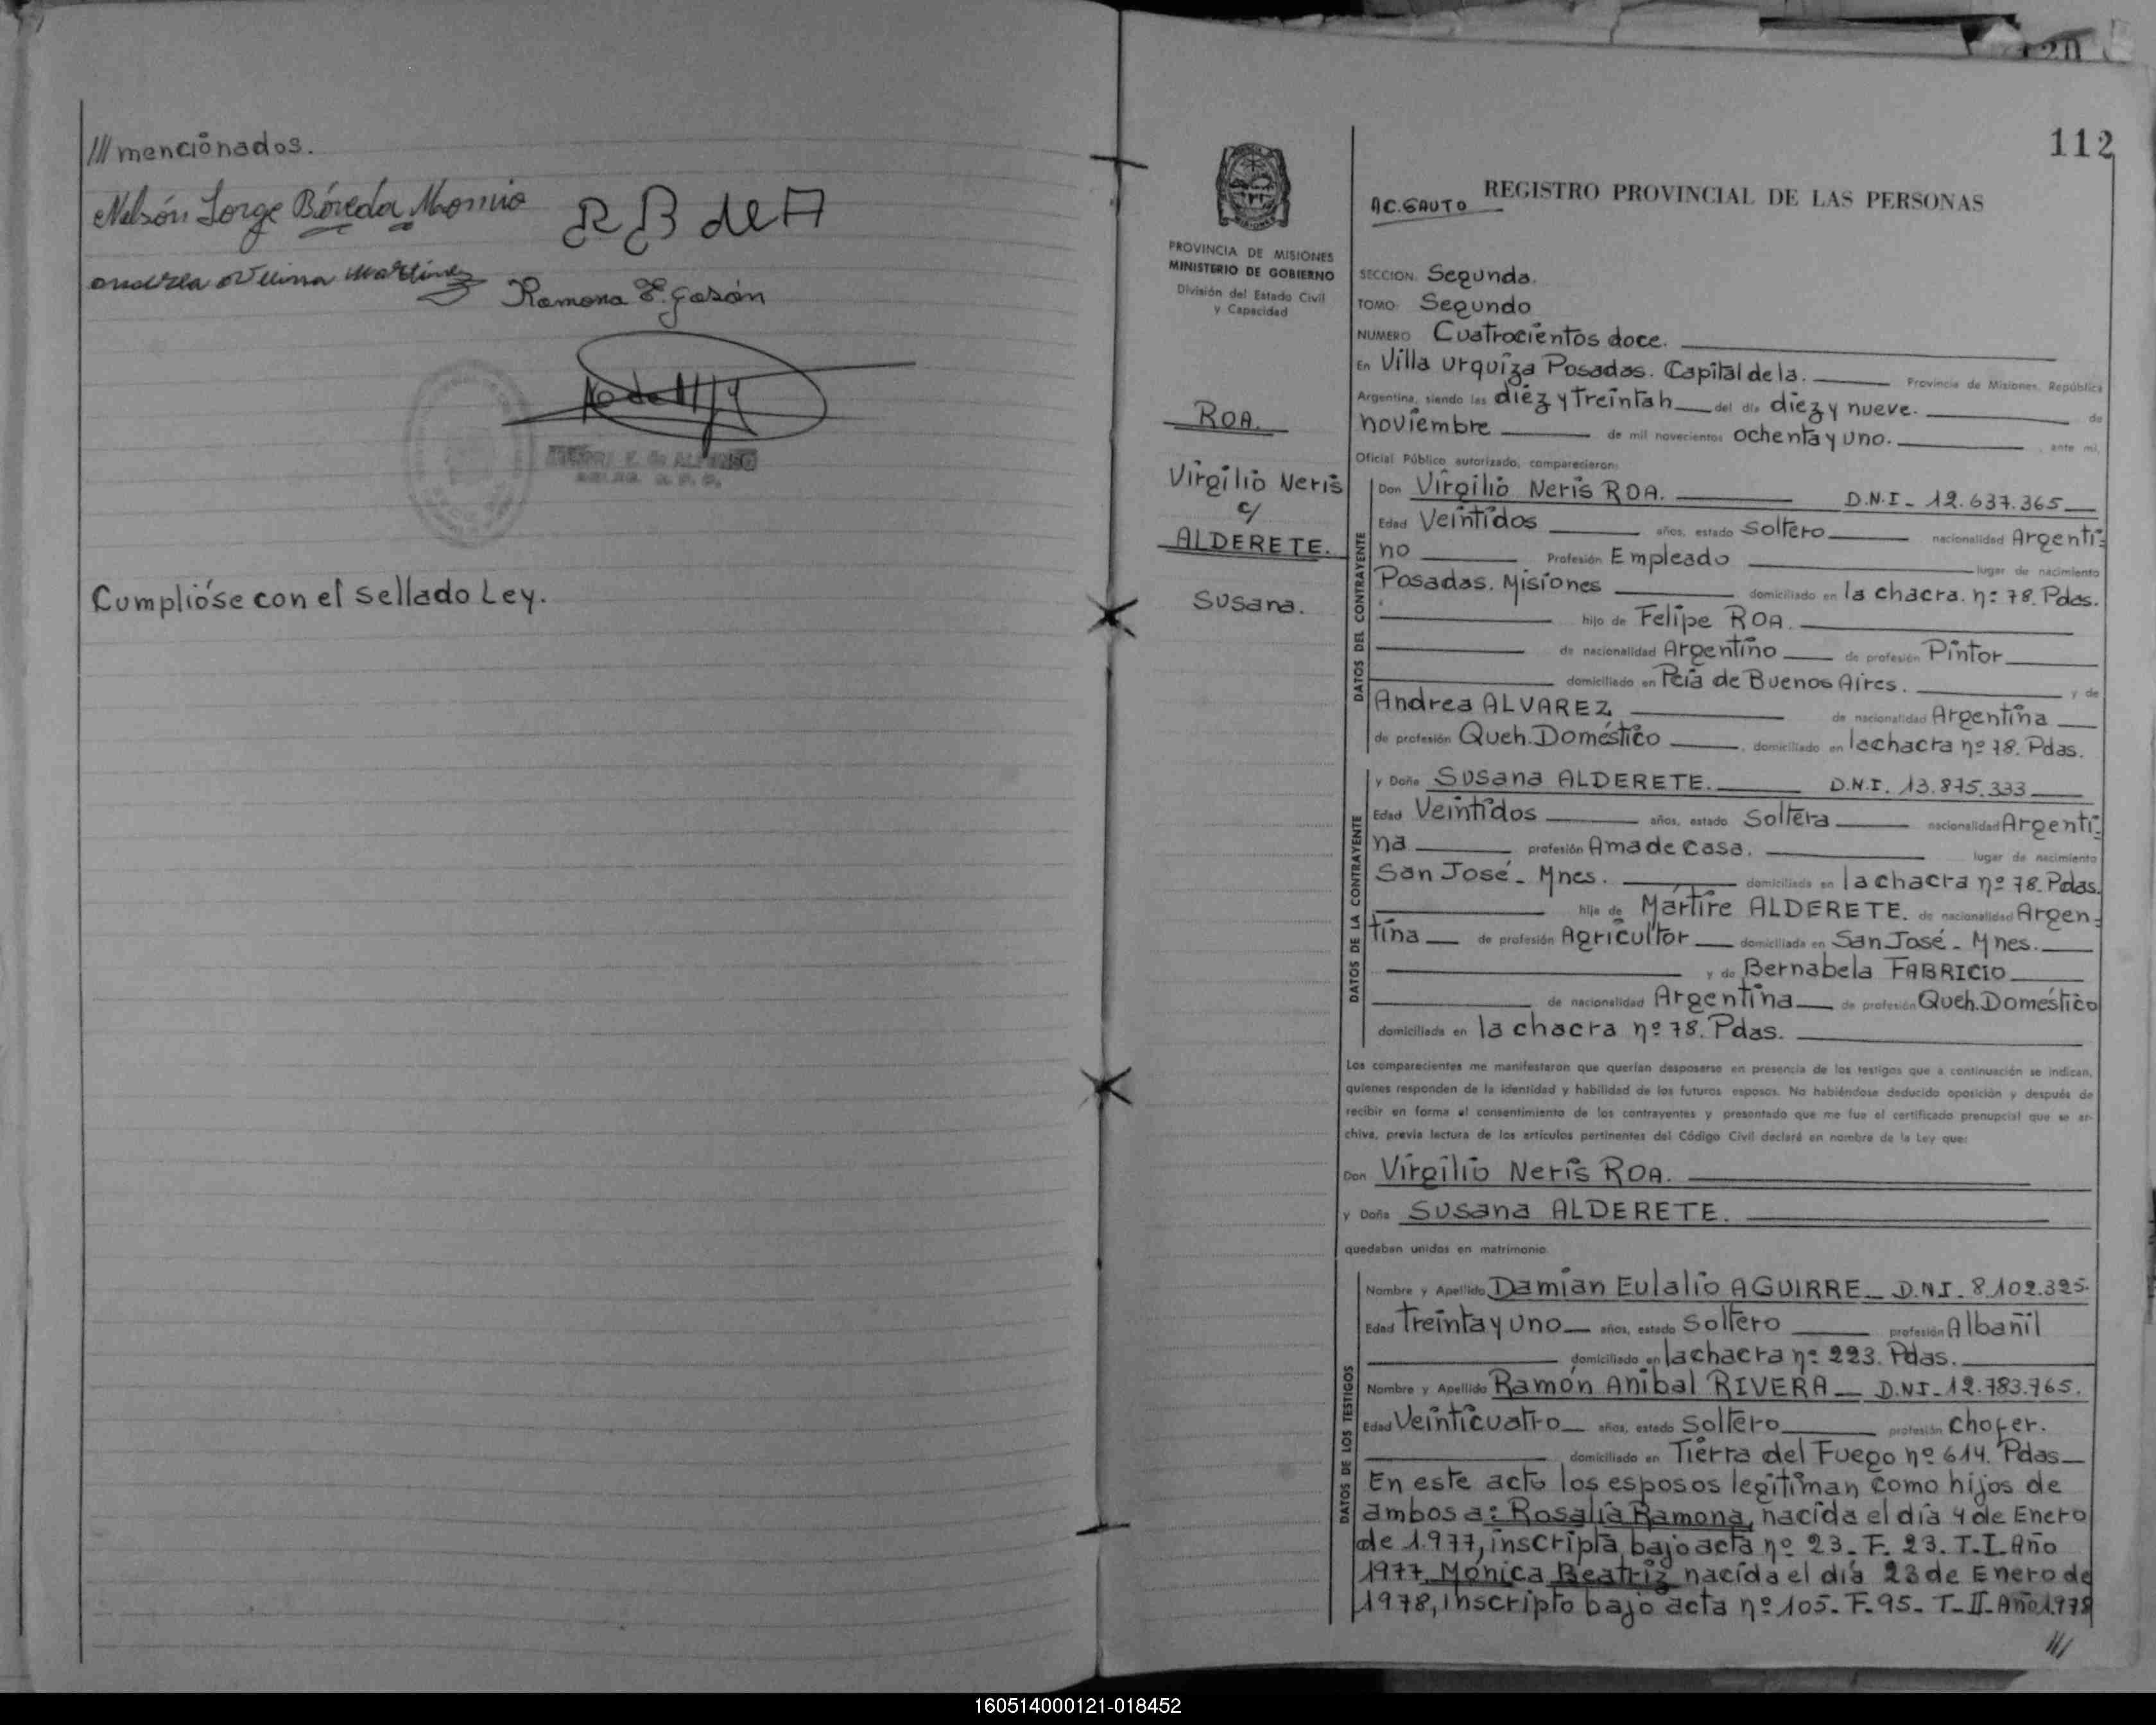 /// mencionados.
Nelsón Jorge Bóveda
R B de A
Martínez
Ramona
Cumplióse con el sellado Ley.
112
REGISTRO PROVINCIAL DE LAS PERSONAS
AC. GAUTO
PROVINCIA DE MISIONES
MINISTERIO DE GOBIERNO
División del Estado Civil
y Capacidad
ROA.
Virgilio Neris
c/
ALDERETE.
Susana.
SECCION: Segunda.
TOMO: Segundo
NUMERO Cuatrocientos doce.
En Villa Urquiza Posadas. Capital de la. Provincia de Misiones, República
Argentina, siendo las diez y treinta h del día diez y nueve. de
noviembre de mil novecientos ochenta y uno. , ante mí,
Oficial Público autorizado, comparecieron:
DATOS DEL CONTRAYENTE
Don Virgilio Neris ROA. D.N.I - 12.637.365
Edad Veintidos años, estado Soltero nacionalidad Argenti=
no Profesión Empleado lugar de nacimiento
Posadas. Misiones domiciliado en la chacra. n: 78. Pdas.
hijo de Felipe ROA.
de nacionalidad Argentino de profesión Pintor
domiciliado en Pcia de Buenos Aires. y de
Andrea ALVAREZ de nacionalidad Argentina
de profesión Queh. Doméstico , domiciliado en la chacra nº 78. Pdas.
DATOS DE LA CONTRAYENTE
y Doña Susana ALDERETE. D.N.I. 13.875.333
Edad Veintidos años, estado Soltera nacionalidad Argenti=
na profesión Ama de Casa. lugar de nacimiento
San José - Mnes. domiciliada en la chacra nº 78. Pdas.
hija de Mártire ALDERETE. de nacionalidad Argen=
tina de profesión Agricultor domiciliada en San José - Mnes.
y de Bernabela FABRICIO
de nacionalidad Argentina de profesión Queh. Doméstico
domiciliada en la chacra nº 78. Pdas.
Los comparecientes me manifestaron que querían desposarse en presencia de los testigos que a continuación se indican,
quienes responden de la identidad y habilidad de los futuros esposos. No habiéndose deducido oposición y después de
recibir en forma el consentimiento de los contrayentes y presentado que me fue el certificado prenupcial que se ar-
chiva, previa lectura de los artículos pertinentes del Código Civil declaré en nombre de la Ley que:
Don Virgilio Neris ROA.
y Doña Susana ALDERETE.
quedaban unidos en matrimonio.
DATOS DE LOS TESTIGOS
Nombre y Apellido Damian Eulalio AGUIRRE - D.N.I - 8.102.325.
Edad Treinta y uno años, estado Soltero profesión Albañil
domiciliado en la chacra n: 223. Pdas.
Nombre y Apellido Ramón Anibal RIVERA - D.N.I - 12.783.765.
Edad Veinticuatro años, estado Soltero profesión Chofer.
domiciliado en Tierra del Fuego nº 614. Pdas
En este acto los esposos legitiman como hijos de
ambos a: Rosalía Ramona, nacida el día 4 de Enero
de 1.977, inscripta bajo acta nº 23 - F. 23. T-I-Año
1977. Mónica Beatriz nacida el día 23 de Enero de
1978, inscripto bajo acta nº 105 - F- 95 - T- II- Año 1.978
///
160514000121-018452